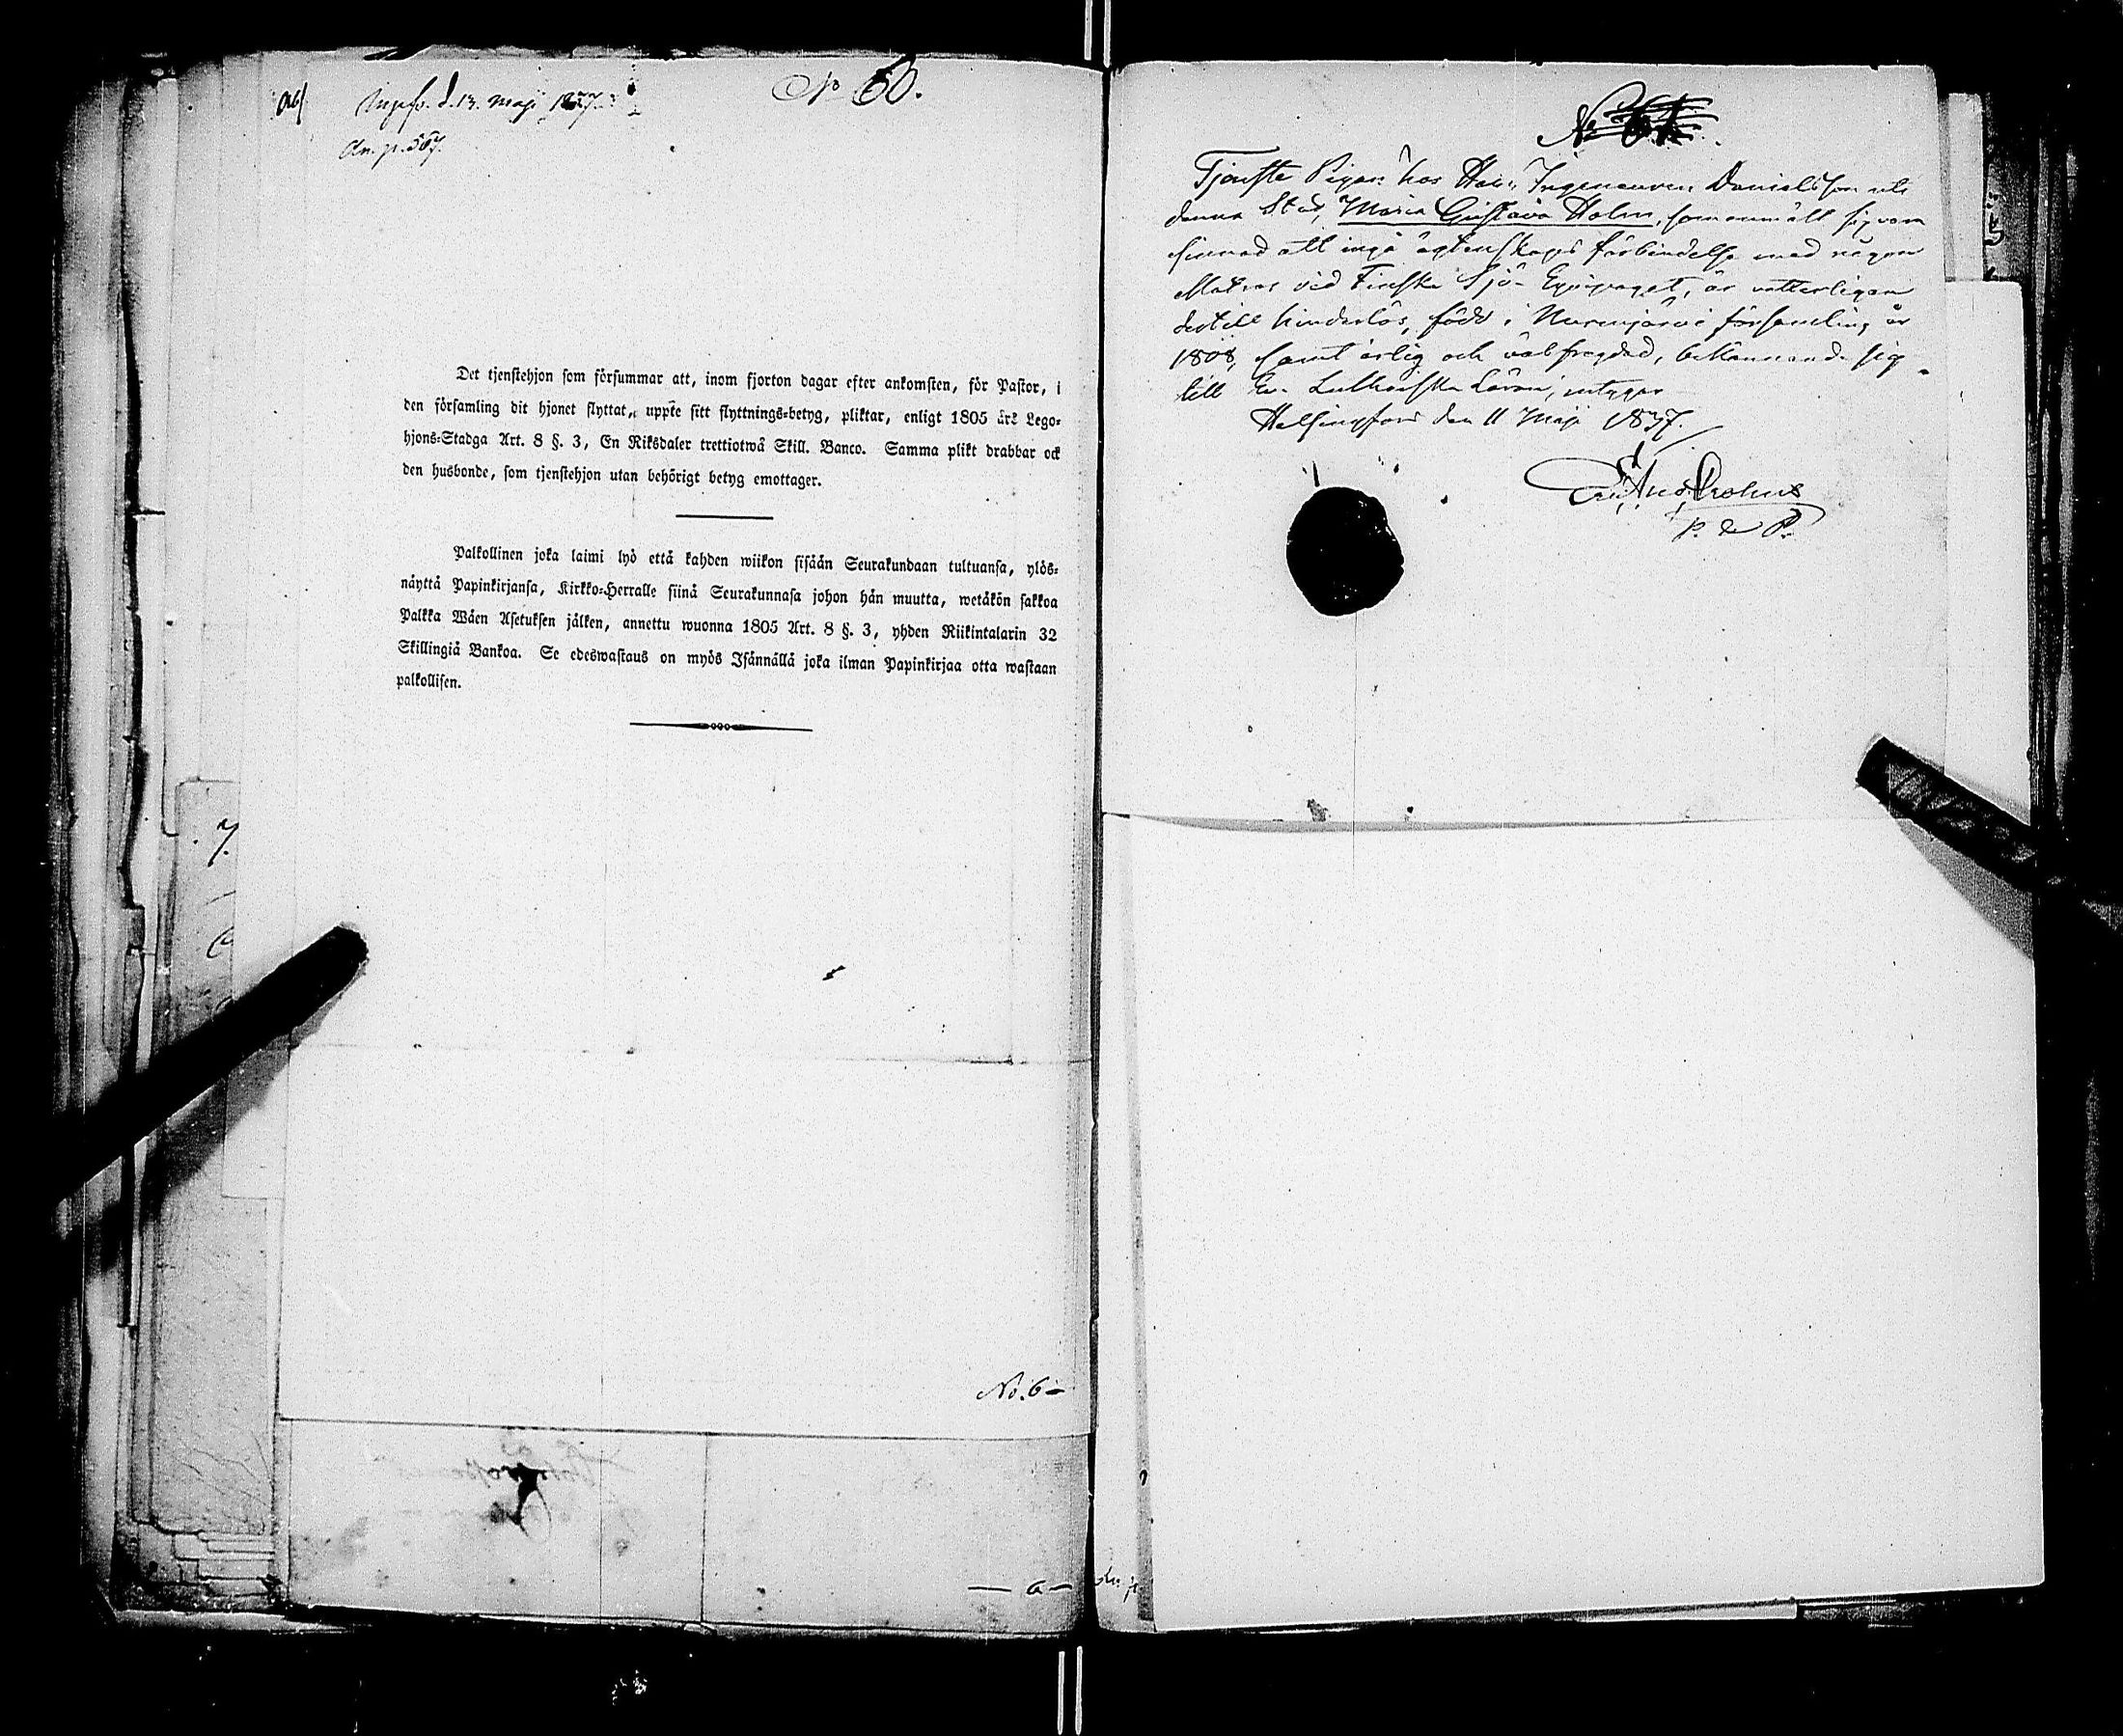 No 60.
d. 13. Maji 1837.
An. p. 367.
Det tjenstehjon som försummar att, inom fjorton dagar efter ankomsten, för Pastor, i
den församling dit hjonet flyttat, uppte sitt flyttnings-betyg, pliktar, enligt 1805 års Lego-
hjons-Stadga Art. 8 §. 3, En Riksdaler trettiotwå Skill. Banco. Samma plikt drabbar ock
den husbonde, som tjenstehjon utan behörigt betyg emottager.
Palkollinen joka laimi lyö että kahden wiikon sisään Seurakundaan tultuansa, ylös-
näyttä Papinkirjansa, Kirkko-Herralle siinä Seurakunnasa johon hän muutta, wetäkön sakkoa
Palkka Wäen Asetuksen jälken, annettu wuonna 1805 Art. 8 §. 3, yhden Riikintalarin 32
Skillingiä Bankoa. Se edeswastaus on myös Isännällä joka ilman Papinkirjaa otta wastaan
palkollisen.
No. 6
Tjenste Pigan hos Herr Ingenieuren Danielsson uti
denna Stad, Maria Gustava Holm, som anmält sig vara
sinnad att ingå ägtenskaps förbindelse med någon
Matros vid Finska Sjö-Equipaget, är vetterligen
dertill hinderlös, född i Nurmijärvi församling år
1808, samt ärlig och välfregdad, bekännande sig
till Ev. Lutherska Läran; intygar
Helsingfors den 11 Maji 1837.
P. & P.